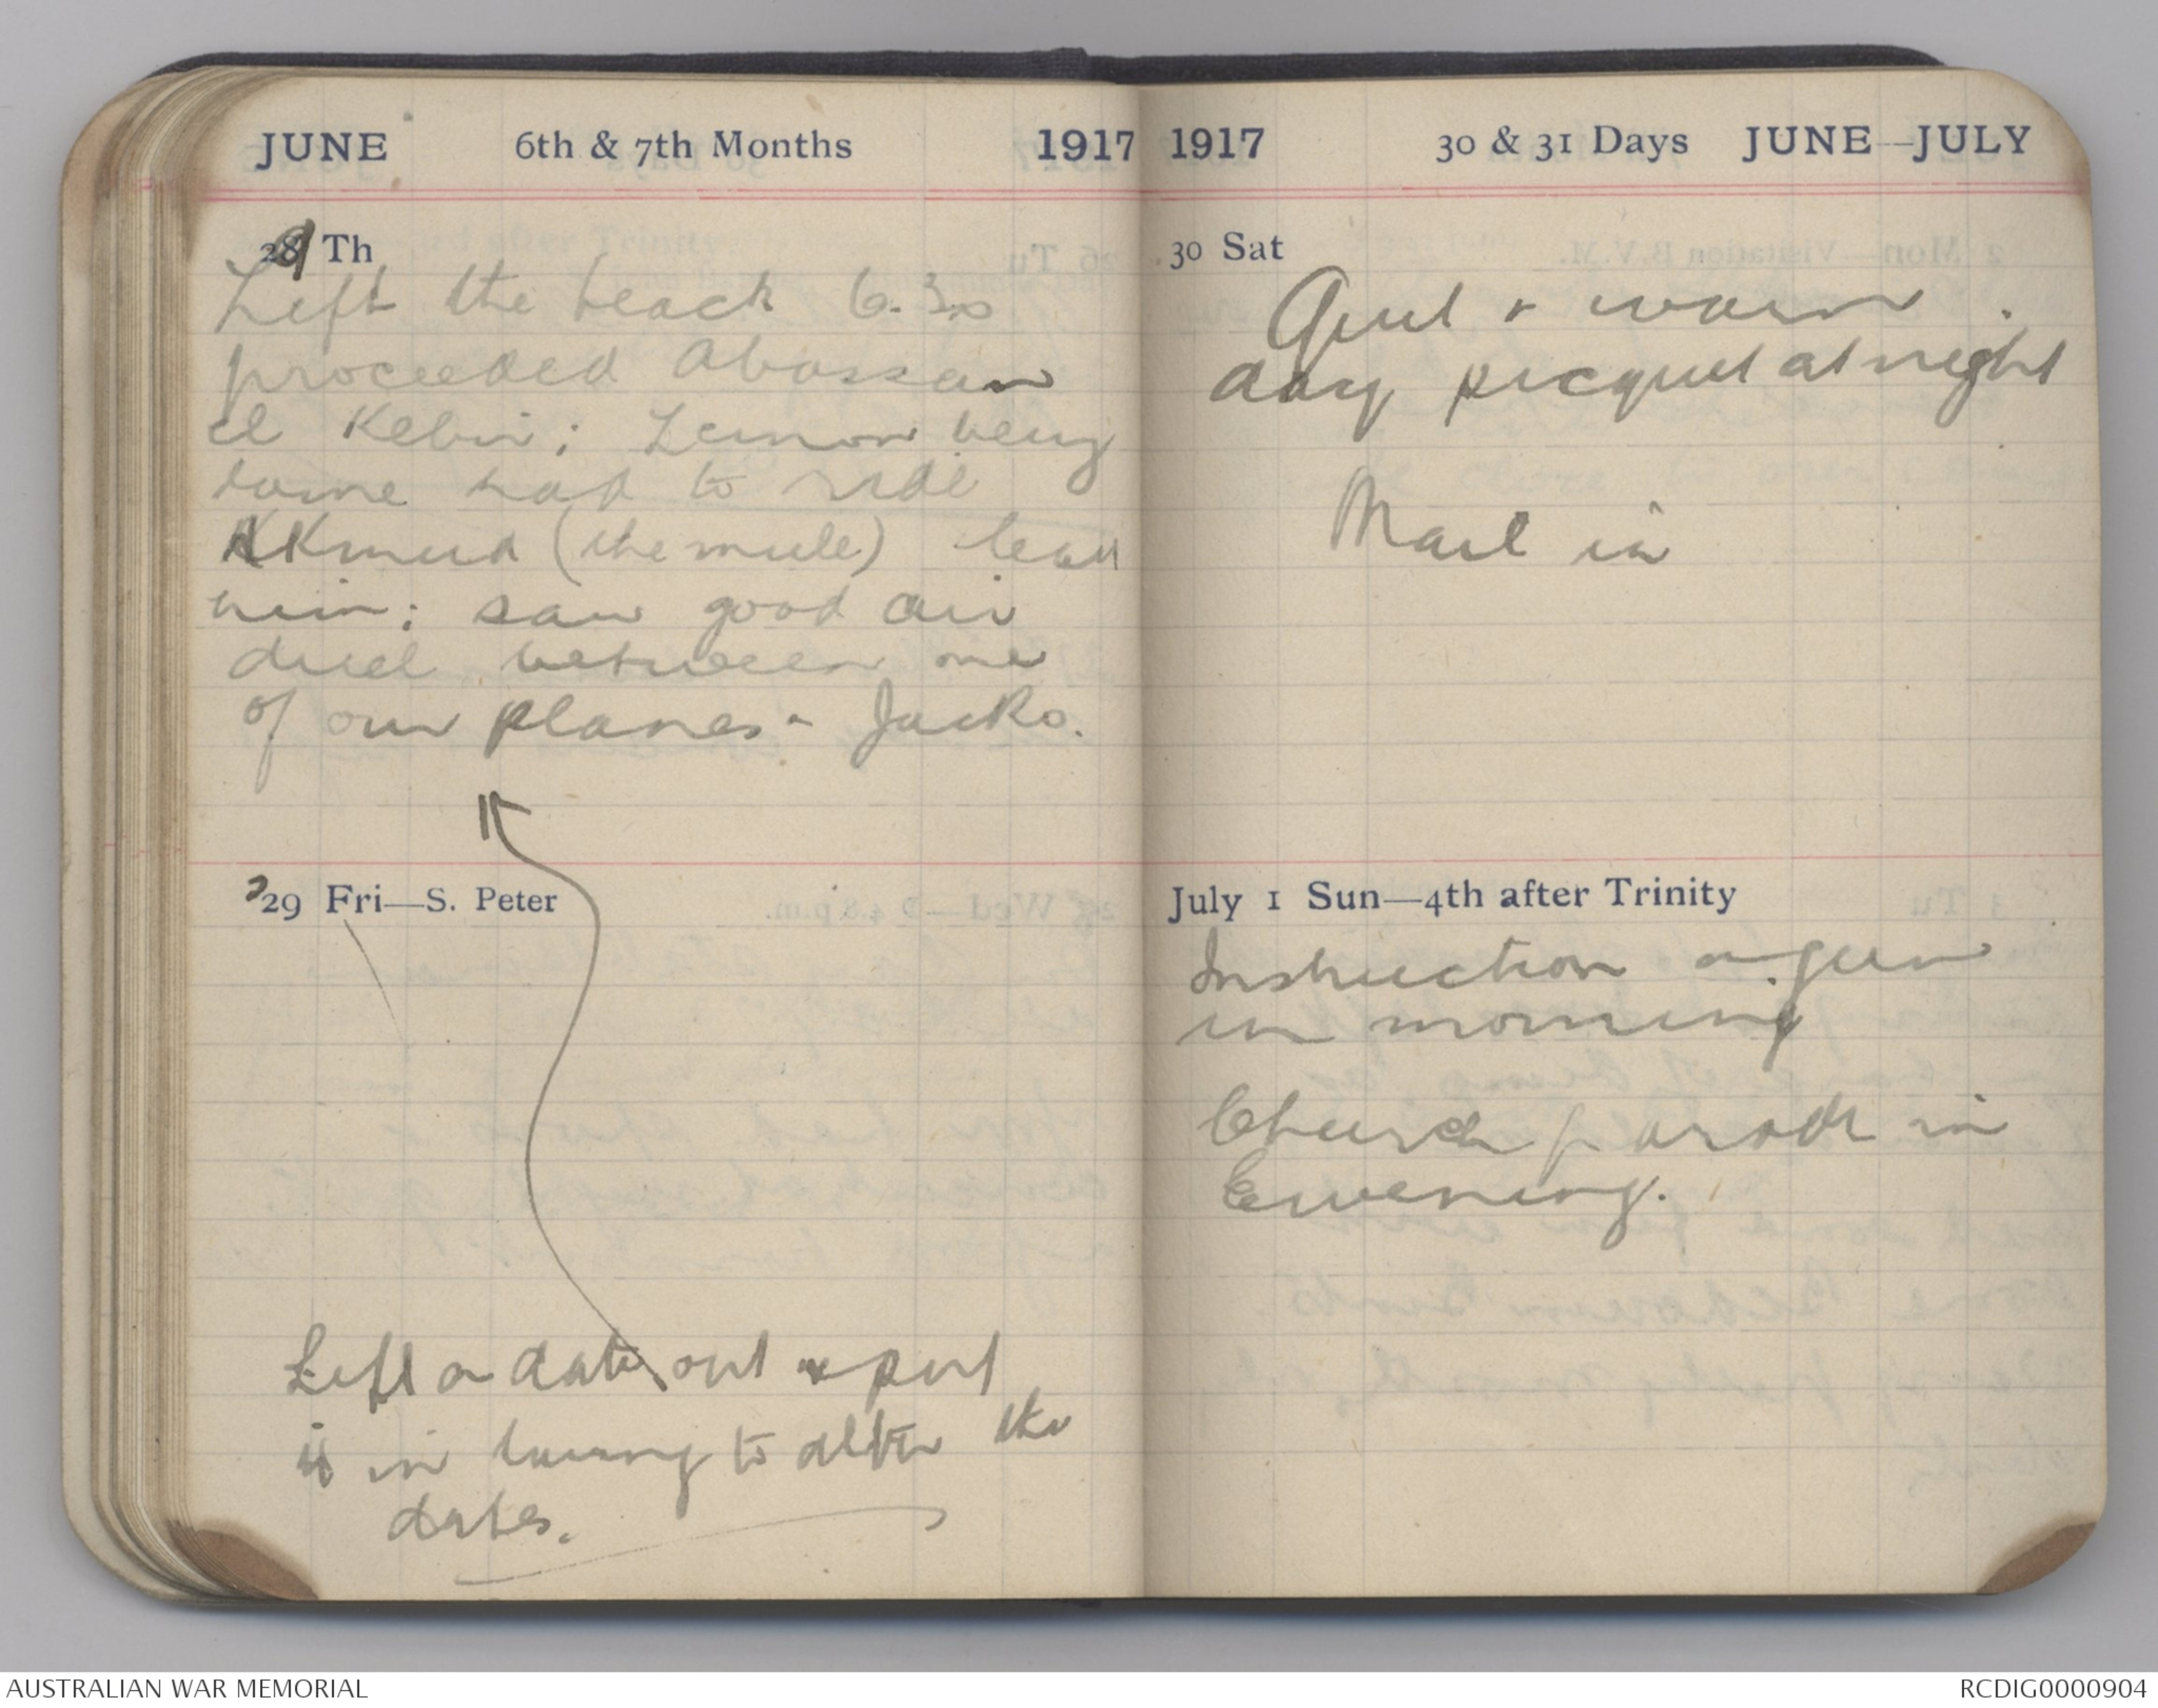 JUNE 6th & 7th Months 1917
29 Th
Left the beach 6.30
proceeded Abassan
el Kebir; Lemon being
lame had to ride
(the mule) lead
him: saw good air
duel between one
of our planes & Jacko.
29 Fri—S. Peter
Left a date out & put
it in having to alter the
dates.
1917 30 & 31 Days JUNE—JULY
30 Sat
Quiet & warm
day picquet at night
Mail in
July 1 Sun—4th after Trinity
Instruction a gun
in morning
Church parade in
Evening.
AUSTRALIAN WAR MEMORIAL
RCDIG0000904